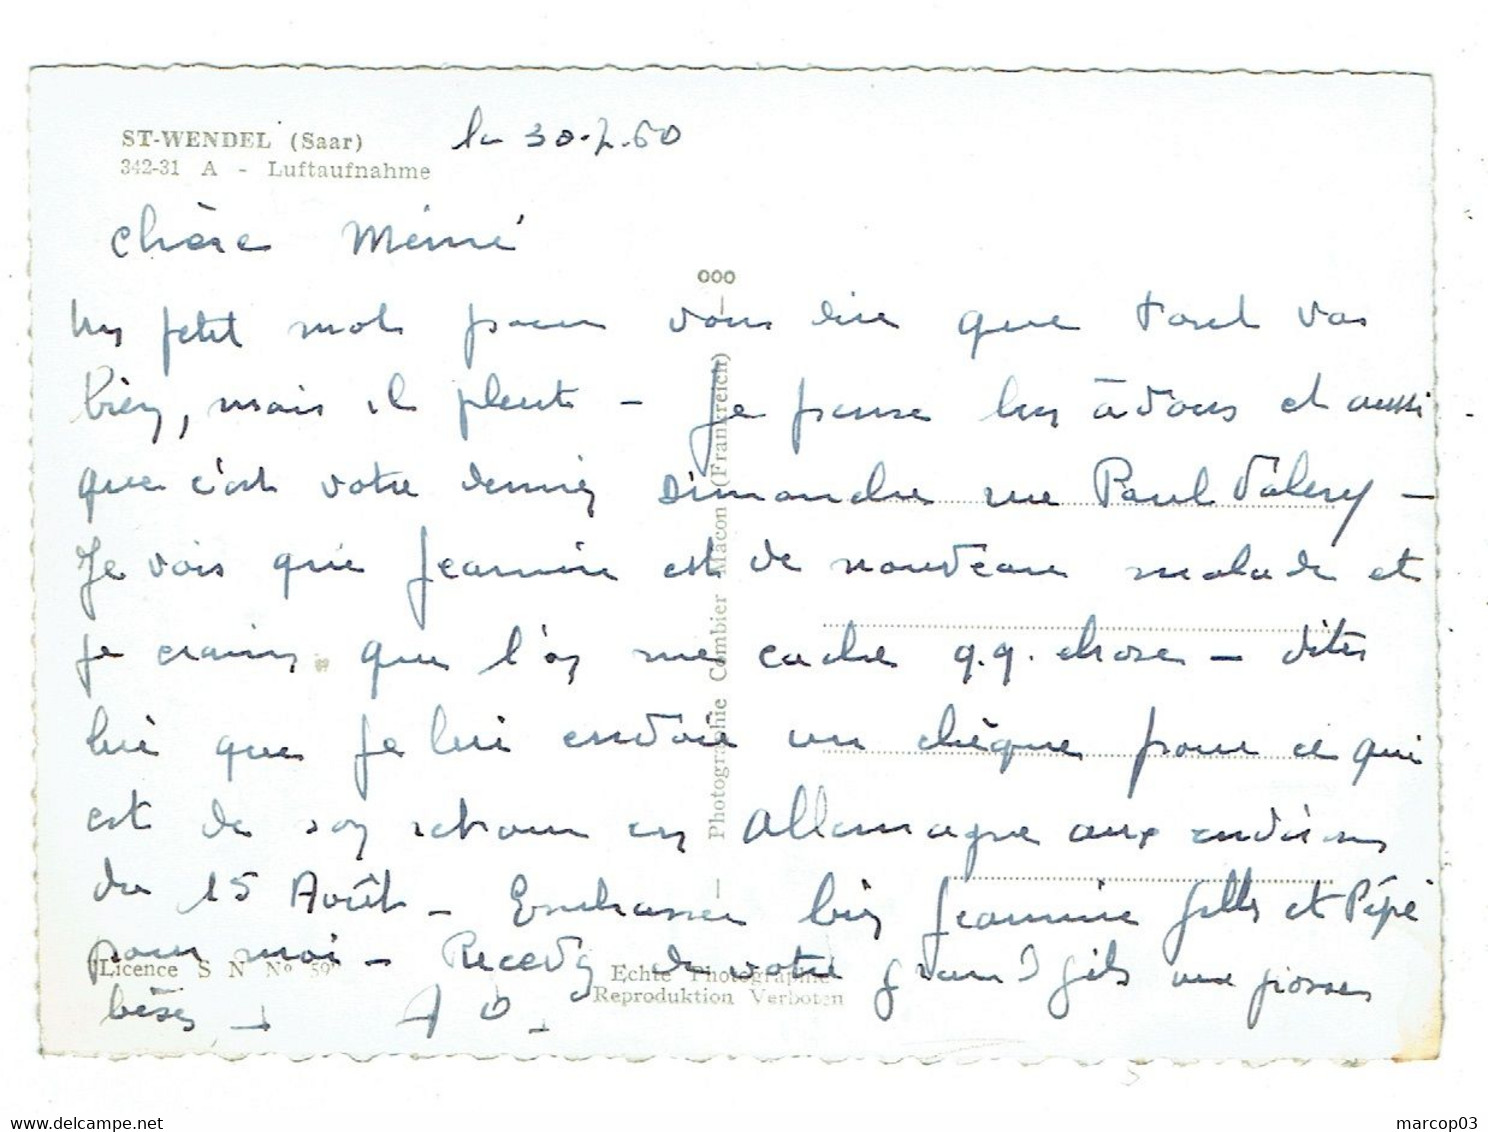 ST-WENDEL (Saar)
342-31 A - Luftaufnahme
le 30.7.60
Chère Mémé
Un petit mot pour vous dire que tout vas
bien, mais il pleut - Je pense bien à vous et aussi
que c'est votre dernier dimanche rue Paul Valery -
Je vois que Jeannine est de nouveau malade et
je crains que l'on me cache q.q. chose - dites
lui que je lui envoie un chèque pour ce qui
est de son retour en Allemagne aux environs
du 15 Août - Embrassez bien Jeannine Gilles et Pépé
pour moi - Recevez de votre grand fils une grosses
bises -
ooo
Photographie Combier Macon (Frankreich)
Licence S N No 59
Echte Photographie
Reproduktion Verboten
delcampe.net
marcop03